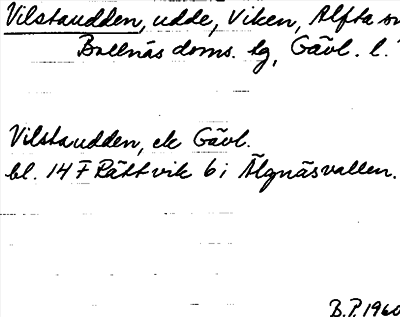 Vilstaudden, udde, Viken, Alfta sn
Bollnäs doms. tg, Gävl. l.
Vilstaudden, ek Gävl.
bl. 14 F Rättvik 6 i Älgnäsvallen.
B.P. 1960